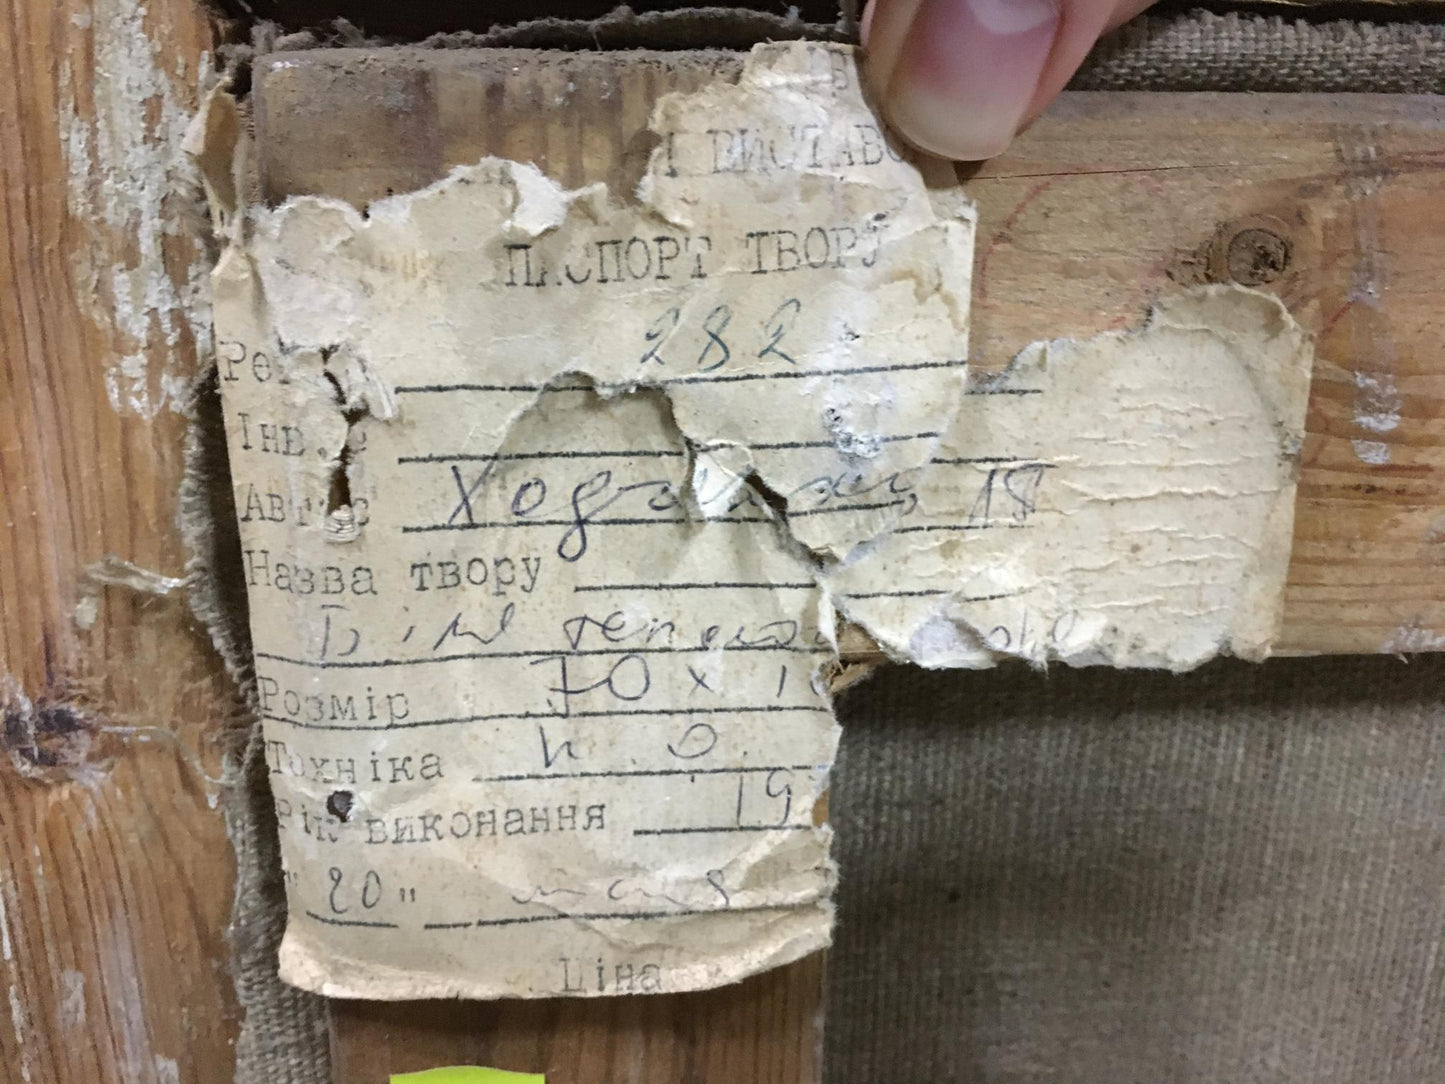 І ВИСТАВО
ПАСПОРТ ТВОРУ
282
Ре
Інв.
Авт 18
Назва твору
Білі
Розмір 70 х 1
Техніка к. о.
Рік виконання 19
" 20 " мая
Ціна